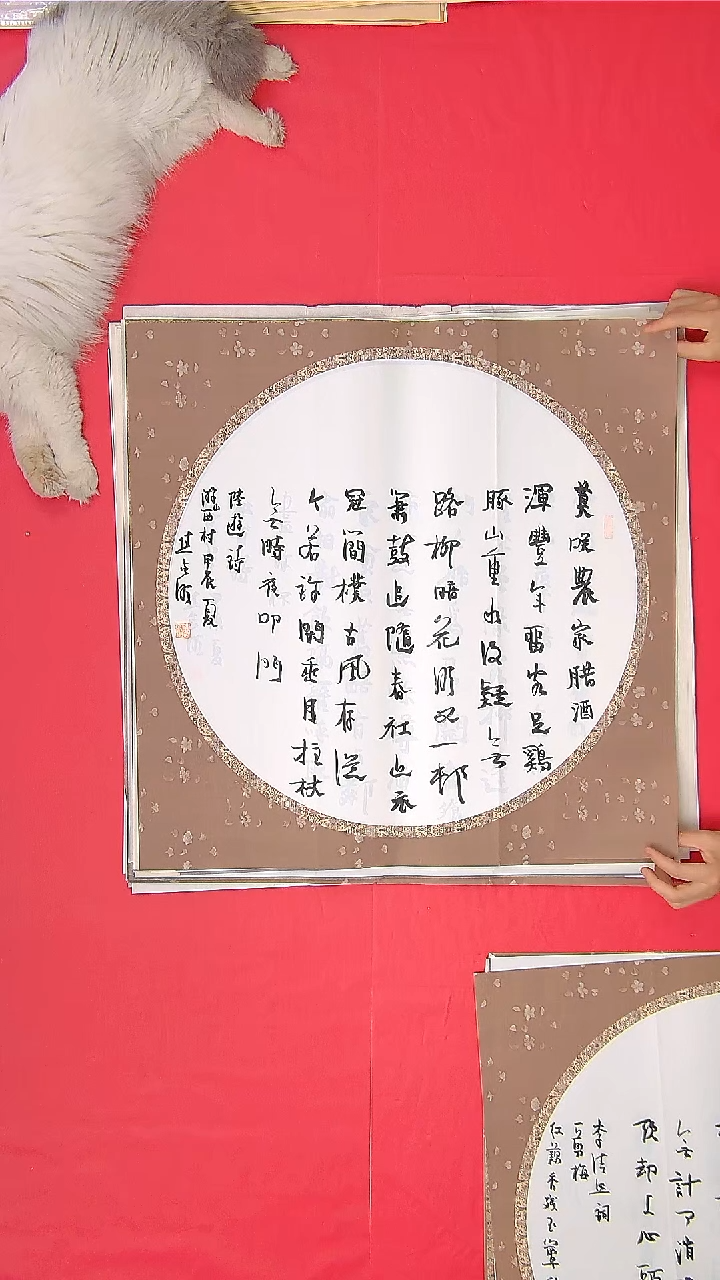 莫咲農家腊酒
渾豐年留客足鷄
豚山重水復疑無
路柳暗花明又一邨
簫鼓追隨春社近衣
冠簡樸古風存從
今若許閑垂月拄杖
無時夜叩門
陸遊詩
遊西村甲辰夏
無計可消
頭却上心頭
李清照詞
一剪梅
紅藕香殘玉簟